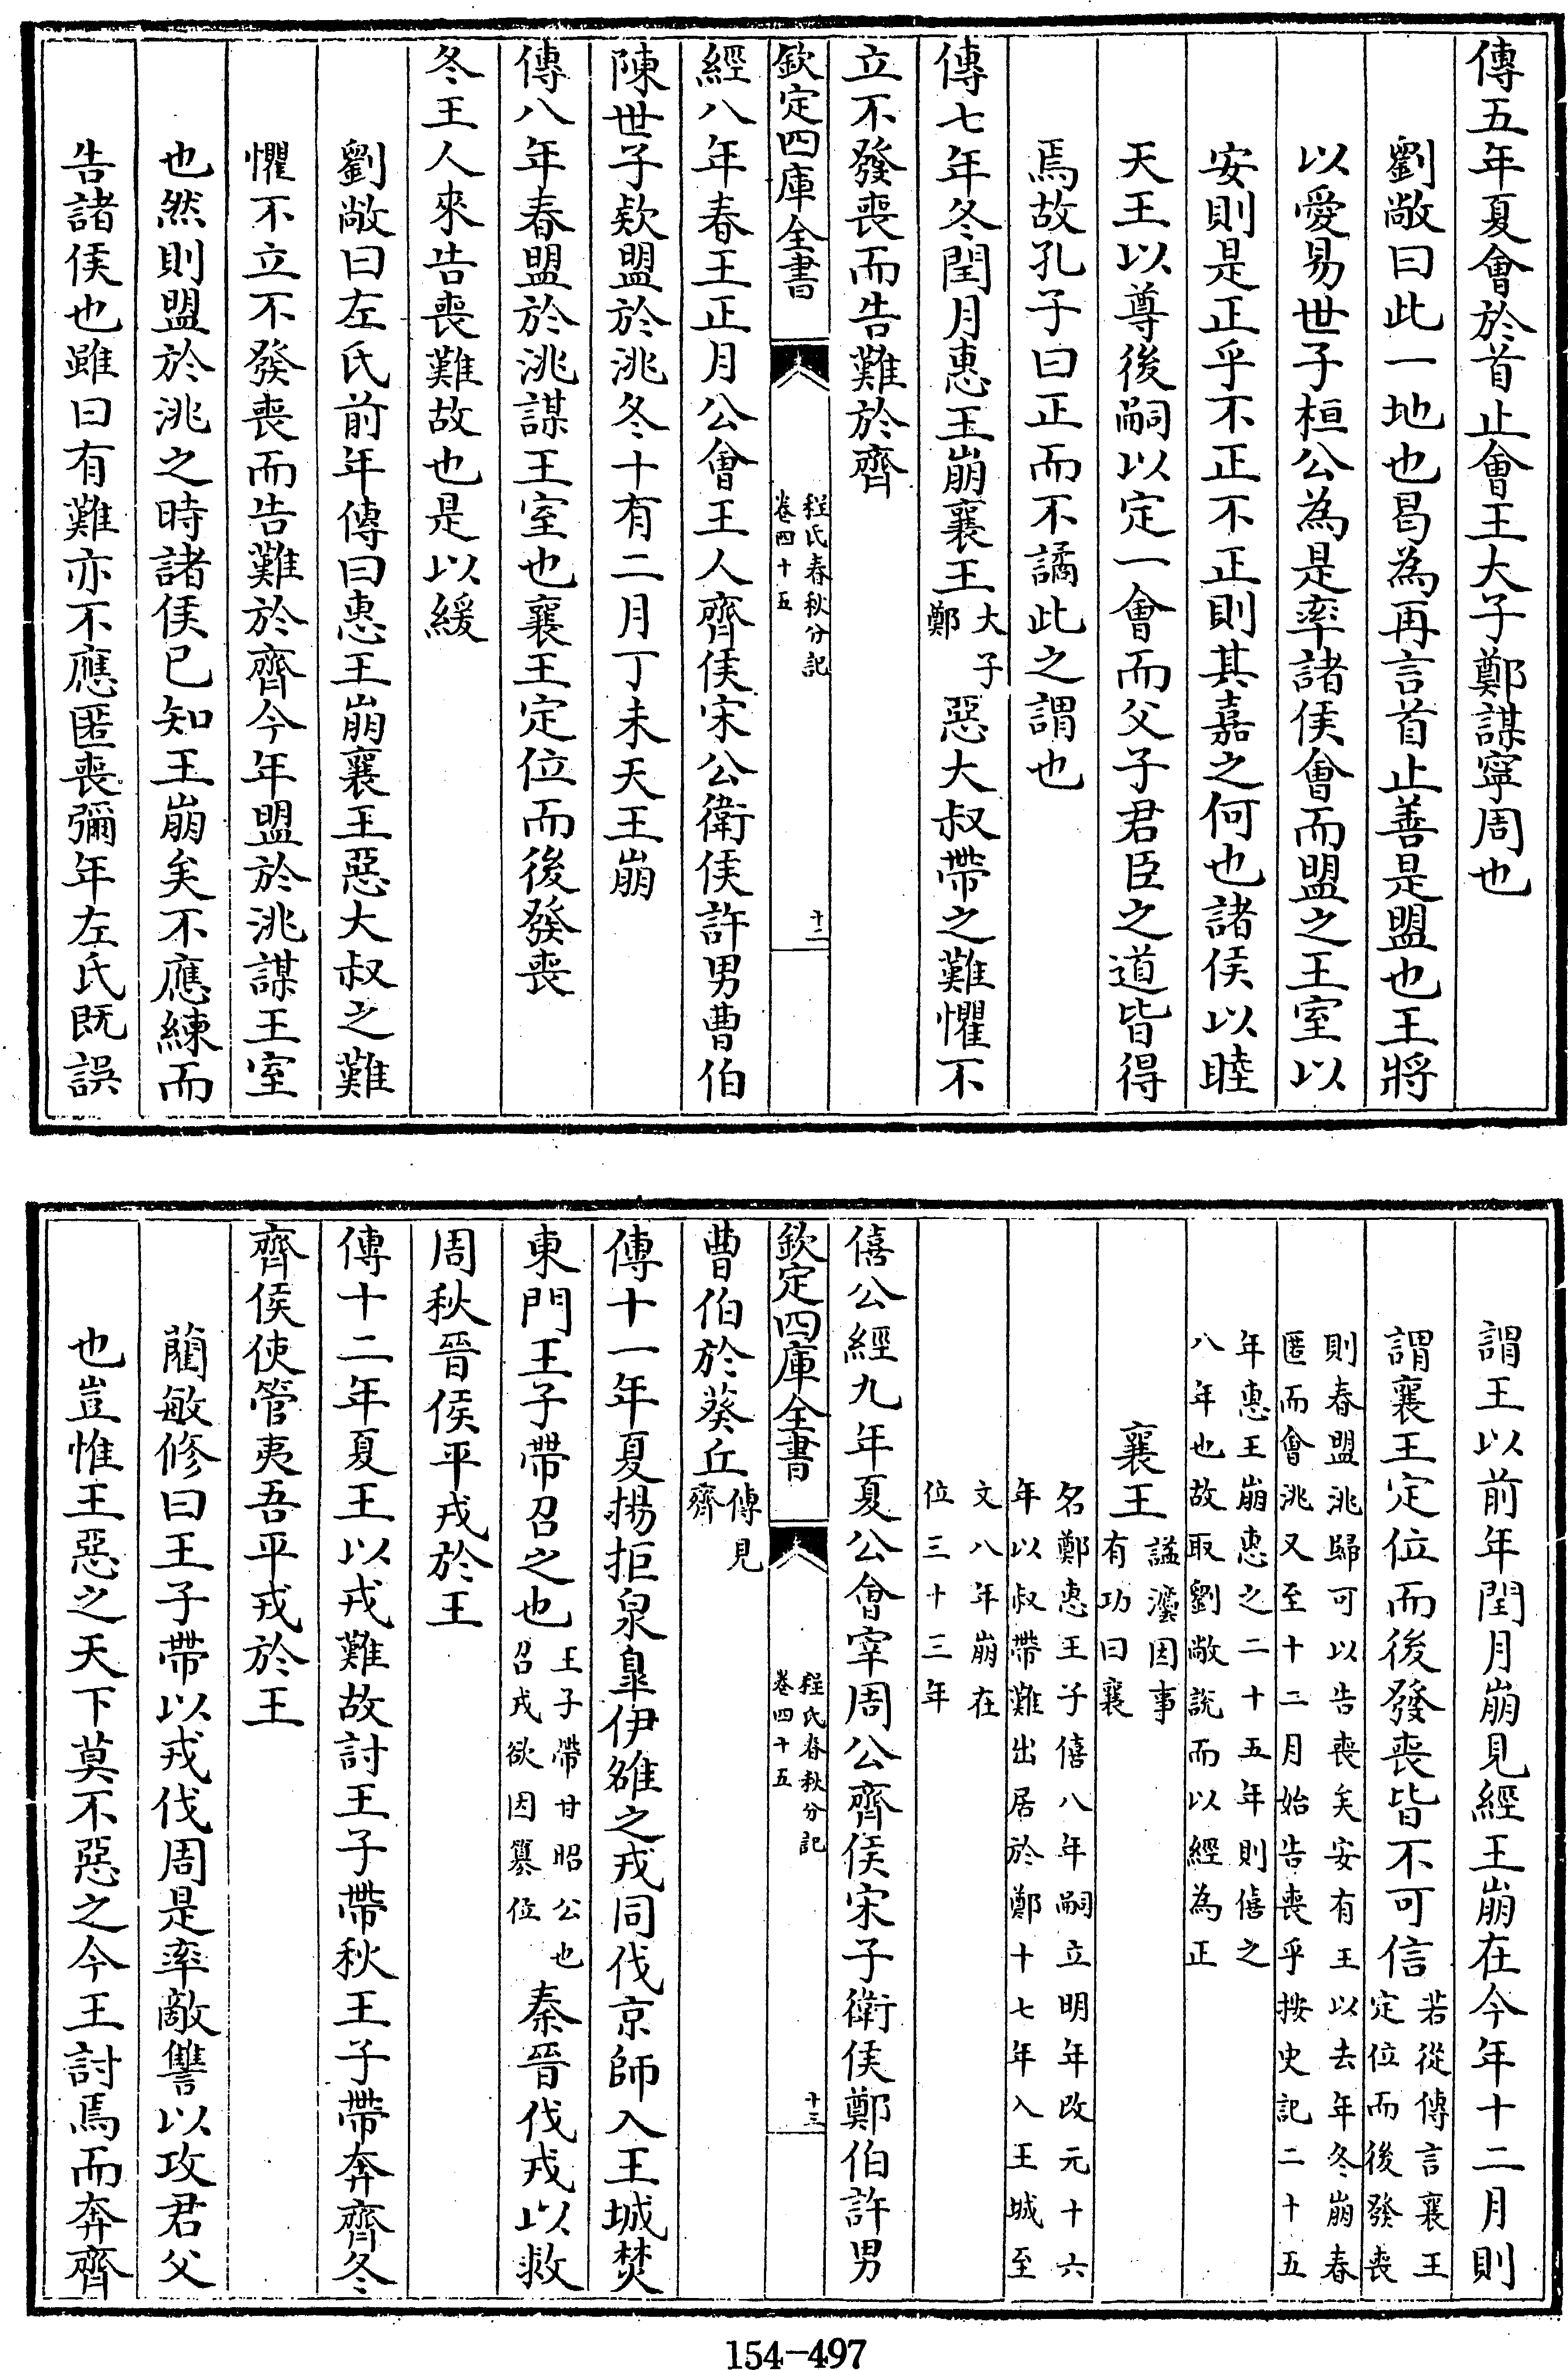 傳五年夏會於首止會王大子鄭謀寧周也
劉敞曰此一地也曷為再言首止善是盟也王將
以愛易世子桓公為是率諸侯會而盟之王室以
安則是正乎不正不正則其嘉之何也諸侯以睦
天王以尊後嗣以定一會而父子君臣之道皆得
焉故孔子曰正而不譎此之謂也
傳七年冬閏月惠王崩襄王大子鄭惡大叔帶之難懼不
立不發喪而告難於齊
欽定四庫全書
程氏春秋分記
卷四十五
十二
經八年春王正月公會王人齊侯宋公衛侯許男曹伯
陳世子欵盟於洮冬十有二月丁未天王崩
傳八年春盟於洮謀王室也襄王定位而後發喪
冬王人來告喪難故也是以緩
劉敞曰左氏前年傳曰惠王崩襄王惡大叔之難
懼不立不發喪而告難於齊今年盟於洮謀王室
也然則盟於洮之時諸侯已知王崩矣不應練而
告諸侯也雖曰有難亦不應匿喪彌年左氏既誤
謂王以前年閏月崩見經王崩在今年十二月則
謂襄王定位而後發喪皆不可信若從傳言襄王
定位而後發喪
則春盟洮歸可以告喪矣安有王以去年冬崩春
匿而會洮又至十二月始告喪乎按史記二十五
年惠王崩惠之二十五年則僖之
八年也故取劉敞説而以經為正
襄王諡灋因事
有功曰襄
名鄭惠王子僖八年嗣立明年改元十六
年以叔帶難出居於鄭十七年入王城至
文八年崩在
位三十三年
僖公經九年夏公會宰周公齊侯宋子衛侯鄭伯許男
欽定四庫全書
程氏春秋分記
卷四十五
十三
曹伯於葵丘傳見
齊
傳十一年夏揚拒泉臯伊雒之戎同伐京師入王城焚
東門王子帶召之也王子帶甘昭公也
召戎欲因簒位秦晉伐戎以救
周秋晉侯平戎於王
傳十二年夏王以戎難故討王子帶秋王子帶奔齊冬
齊侯使管夷吾平戎於王
藺敏修曰王子帶以戎伐周是率敵讐以攻君父
也豈惟王惡之天下莫不惡之今王討焉而奔齊
154-497